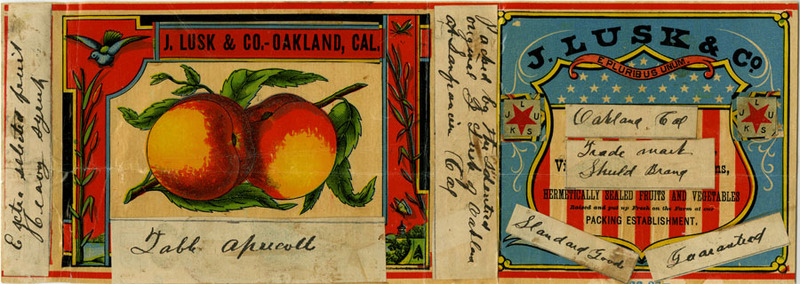 Extra selected fruit
Heavy syrup
J. LUSK & CO.-OAKLAND, CAL.
Table apricott
Packed by the Identical
original J. Lusk of Oakland
at San francisco Cal
J. LUSK & CO
E PLURIBUS UNUM.
LUSK
LUSK
Oakland Cal
Trade mark
Shield Brand
HERMETICALLY SEALED FRUITS AND VEGETABLES
Raised and put up Fresh on the Farm at our
PACKING ESTABLISHMENT.
Standard Goods
Guaranteed